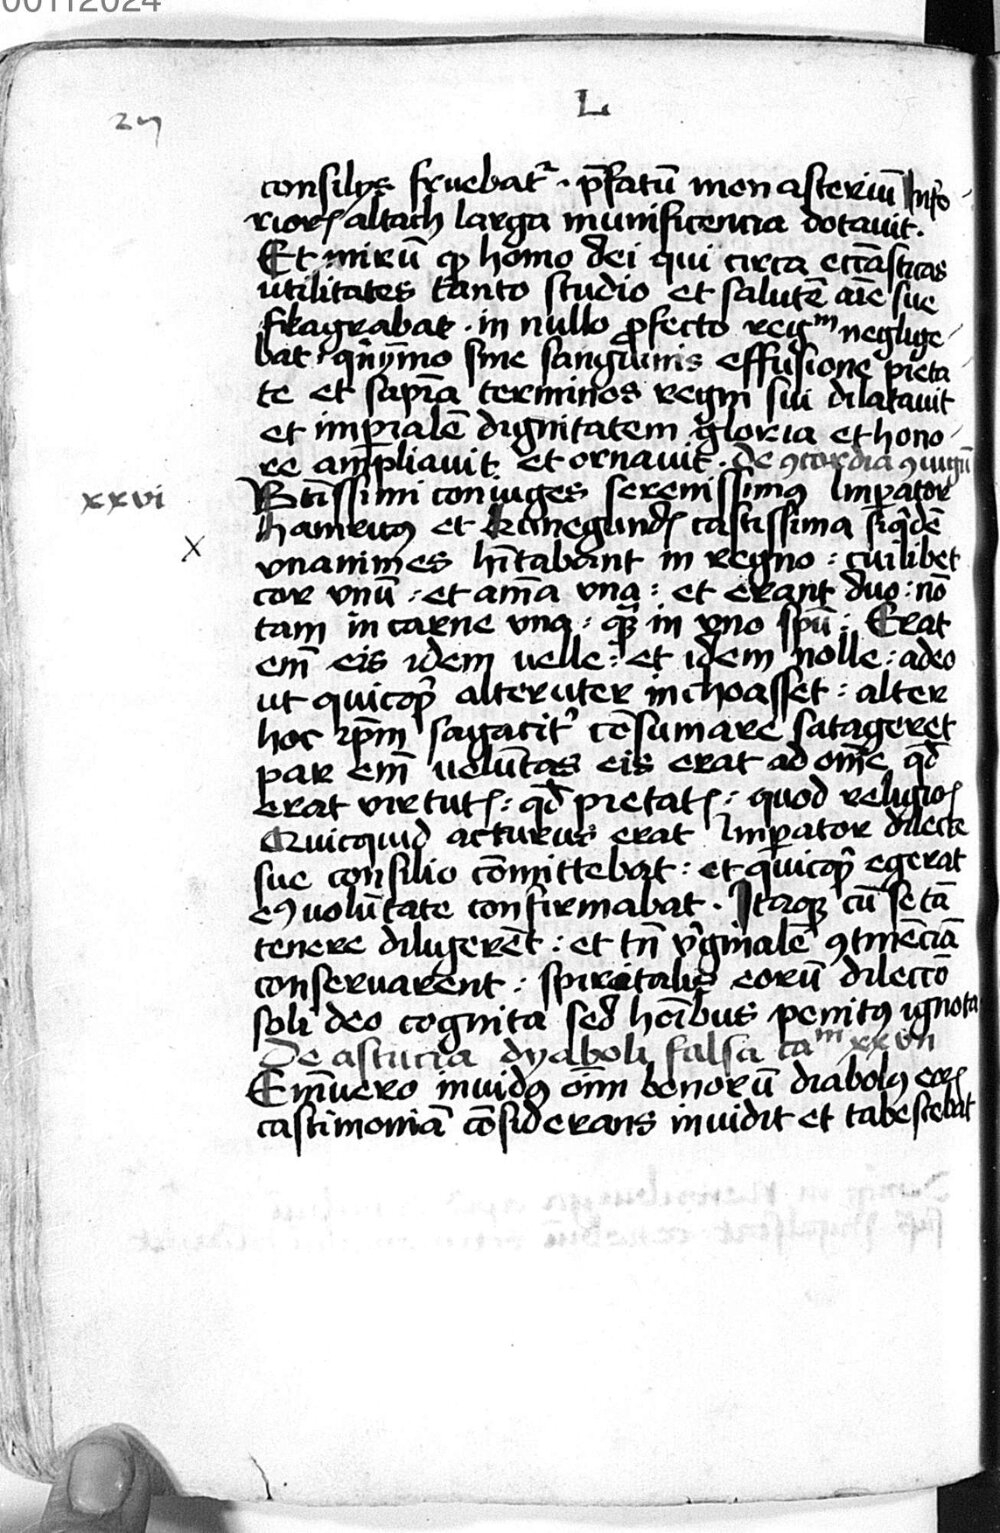 00112024
L
27
consilijs fruebat᷑. p̄fatū monasteriū Infe
rioris altach larga munificencia dotauit.
Et mirū qꝫ homo dei qui circa ecc̄asticas
utilitates tanto studio et salutē aīe sue
flagrabat. in nullo ꝓfecto regm̄ neglige
bat. qīȳmo sine sanguinis effusione pieta
te et sapīa terminos regni sui dilatauit
et imꝑialē dignitatem gloria et hono
re ampliauit et ornauit. De ꝯcordia ꝯiugū
xxvi
Btīssimi coniuges serenissimꝰ Imꝑator
hainricꝰ et Kunegundꝭ castissima siq̄dē
x
vnanimes hītabant in regno: cuilibet
cor vnū: et aīa vna: et erant duo: nō
tam in carne vna: qꝫ in vno spū: Erat
em̄ eis idem uelle: et idem nolle: adeo
ut quicqꝫ alteruter inchoasset: alter
hoc ip̄m sagacit᷑ cōsumare satageret
par em̄ uolūtas eis erat ad om̄e qd̄
erat virtutꝭ: qd̄ pietatꝭ: quod religiōꝭ
Quicquid acturus erat Imꝑator dilecte
sue consilio cōmittebat: et quicqꝫ egerat
eꝰ uolūtate confirmabat. Itaqꝫ cū se tā
tenere diligerēt: et tn̄ v᷑ginalē ꝯtinēciā
conseruarent: spiritalis eorū dileccō
soli deo cognita sed hoībus penitꝰ ignota
De astucia dyaboli falsa ca᷑m xxvii
Enīuero inuidꝰ oīm bonorū diabolꝰ eoꝝ
castimoniā cōsiderans inuidit et tabescebat